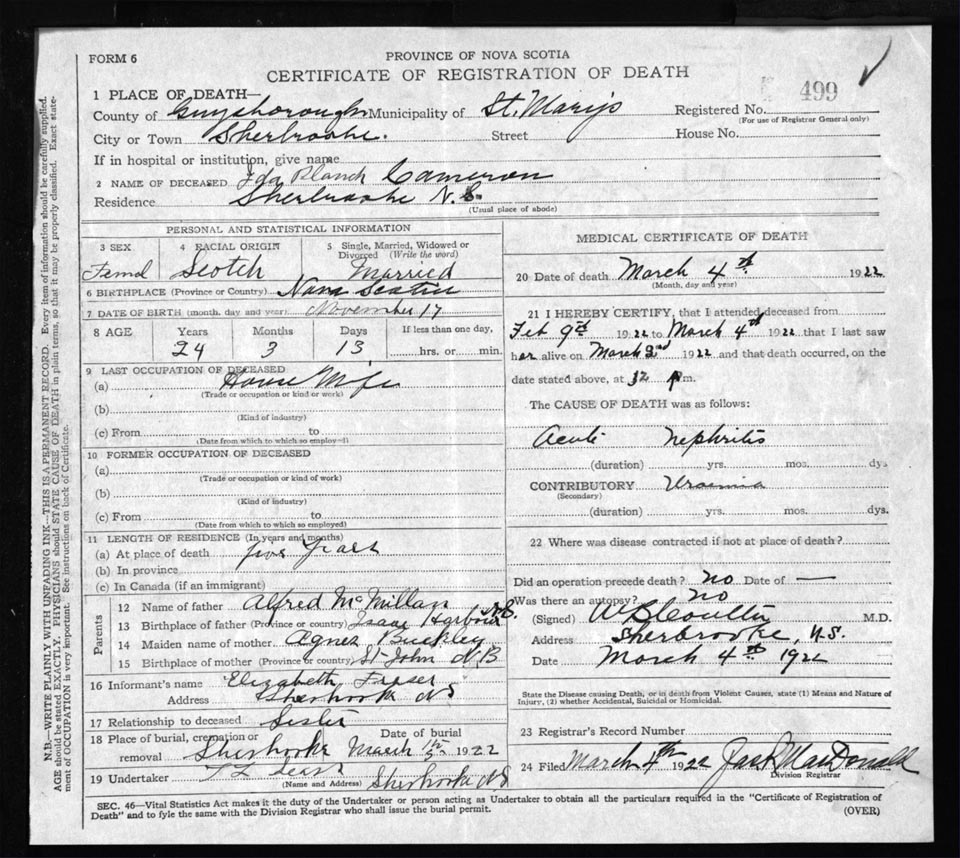 FORM 6
PROVINCE OF NOVA SCOTIA
CERTIFICATE OF REGISTRATION OF DEATH
499
1 PLACE OF DEATH—
County of Guysborough Municipality of St. Mary's Registered No.
(For use of Registrar General only)
City or Town Sherbrooke. Street House No.
If in hospital or institution, give name
2 NAME OF DECEASED Ida Blanch Cameron
Residence Sherbrooke N.S.
(Usual place of abode)
PERSONAL AND STATISTICAL INFORMATION
3 SEX 4 RACIAL ORIGIN 5 Single, Married, Widowed or Divorced (Write the word)
Femal Scotch Married
6 BIRTHPLACE (Province or Country) Nova Scotia
7 DATE OF BIRTH (month, day and year) November 17
8 AGE Years Months Days If less than one day,
24 3 13 hrs. or min.
9 LAST OCCUPATION OF DECEASED
(a) House Wife
(Trade or occupation or kind or work)
(b)
(Kind of industry)
(c) From to
(Date from which to which so employ
10 FORMER OCCUPATION OF DECEASED
(a)
(Trade or occupation or kind of work)
(b)
(Kind of industry)
(c) From to
(Date from which to which so employed)
11 LENGTH OF RESIDENCE (In years and months)
(a) At place of death five years
(b) In province
(c) In Canada (if an immigrant)
Parents
12 Name of father Alfred McMillan
13 Birthplace of father (Province or country) Isaac Harbour N.S.
14 Maiden name of mother Agnes Buckley
15 Birthplace of mother (Province or country) St John N B
16 Informant's name Elizabeth Fraser
Address Sherbrooke N S
17 Relationship to deceased Sister
18 Place of burial, cremation or removal Date of burial
Sherbrooke March 1922
19 Undertaker Sherbrooke N S
(Name and Address)
MEDICAL CERTIFICATE OF DEATH
20 Date of death March 4th 1922
(Month, day and year)
21 I HEREBY CERTIFY, that I attended deceased from
Feb 9th 1922 to March 4th 1922 that I last saw
her alive on March 2nd 1922 and that death occurred, on the
date stated above, at 12 p m.
The CAUSE OF DEATH was as follows:
Acute nephritis
(duration) yrs. mos. dys
CONTRIBUTORY Uraemia
(Secondary)
(duration) yrs. mos. dys.
22 Where was disease contracted if not at place of death?
Did an operation precede death? no Date of —
Was there an autopsy? no
(Signed) M.D.
Address Sherbrooke, N.S.
Date March 4th 1922
State the Disease causing Death, or in death from Violent Causes, state (1) Means and Nature of
Injury, (2) whether Accidental, Suicidal or Homicidal.
23 Registrar's Record Number
24 Filed March 4th 1922 MacDonald
Division Registrar
SEC. 46—Vital Statistics Act makes it the duty of the Undertaker or person acting as Undertaker to obtain all the particulars required in the "Certificate of Registration of
Death" and to fyle the same with the Division Registrar who shall issue the burial permit. (OVER)
N.B.—WRITE PLAINLY WITH UNFADING INK—THIS IS A PERMANENT RECORD. Every item of information should be carefully supplied.
AGE should be stated EXACTLY. PHYSICIANS should STATE CAUSE OF DEATH in plain terms, so that it may be properly classified. Exact state-
ment of OCCUPATION is very important. See instructions on back of Certificate.